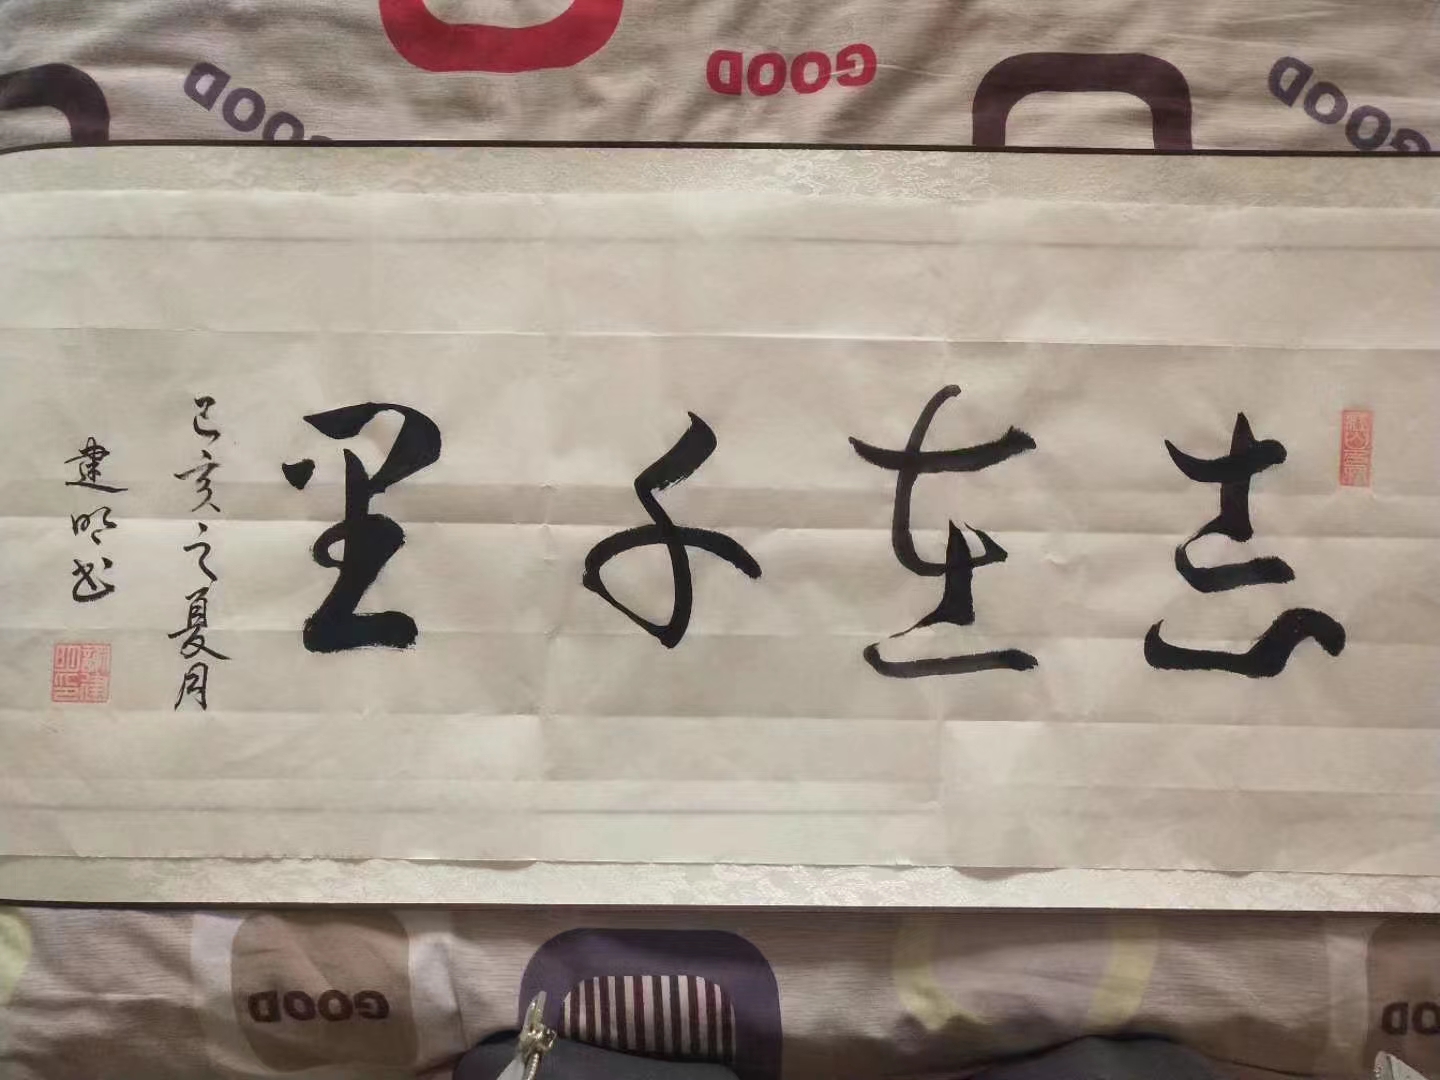 GOOD
GOOD
GOOD
志在千里
己亥之夏月
建明书
GOOD
GOOD